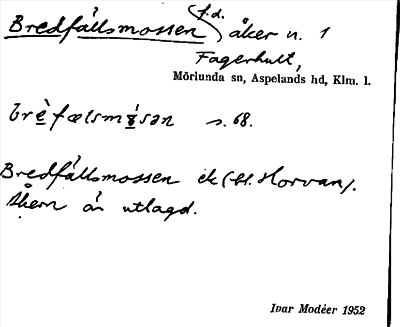 Bredfållsmossen f.d. åker n. 1
Fagerhult,
Mörlunda sn, Aspelands hd, Klm. l.
s. 68.
Bredfållsmossen ck (bl. Horvan).
Åkern är utlagd.
Ivar Modéer 1952